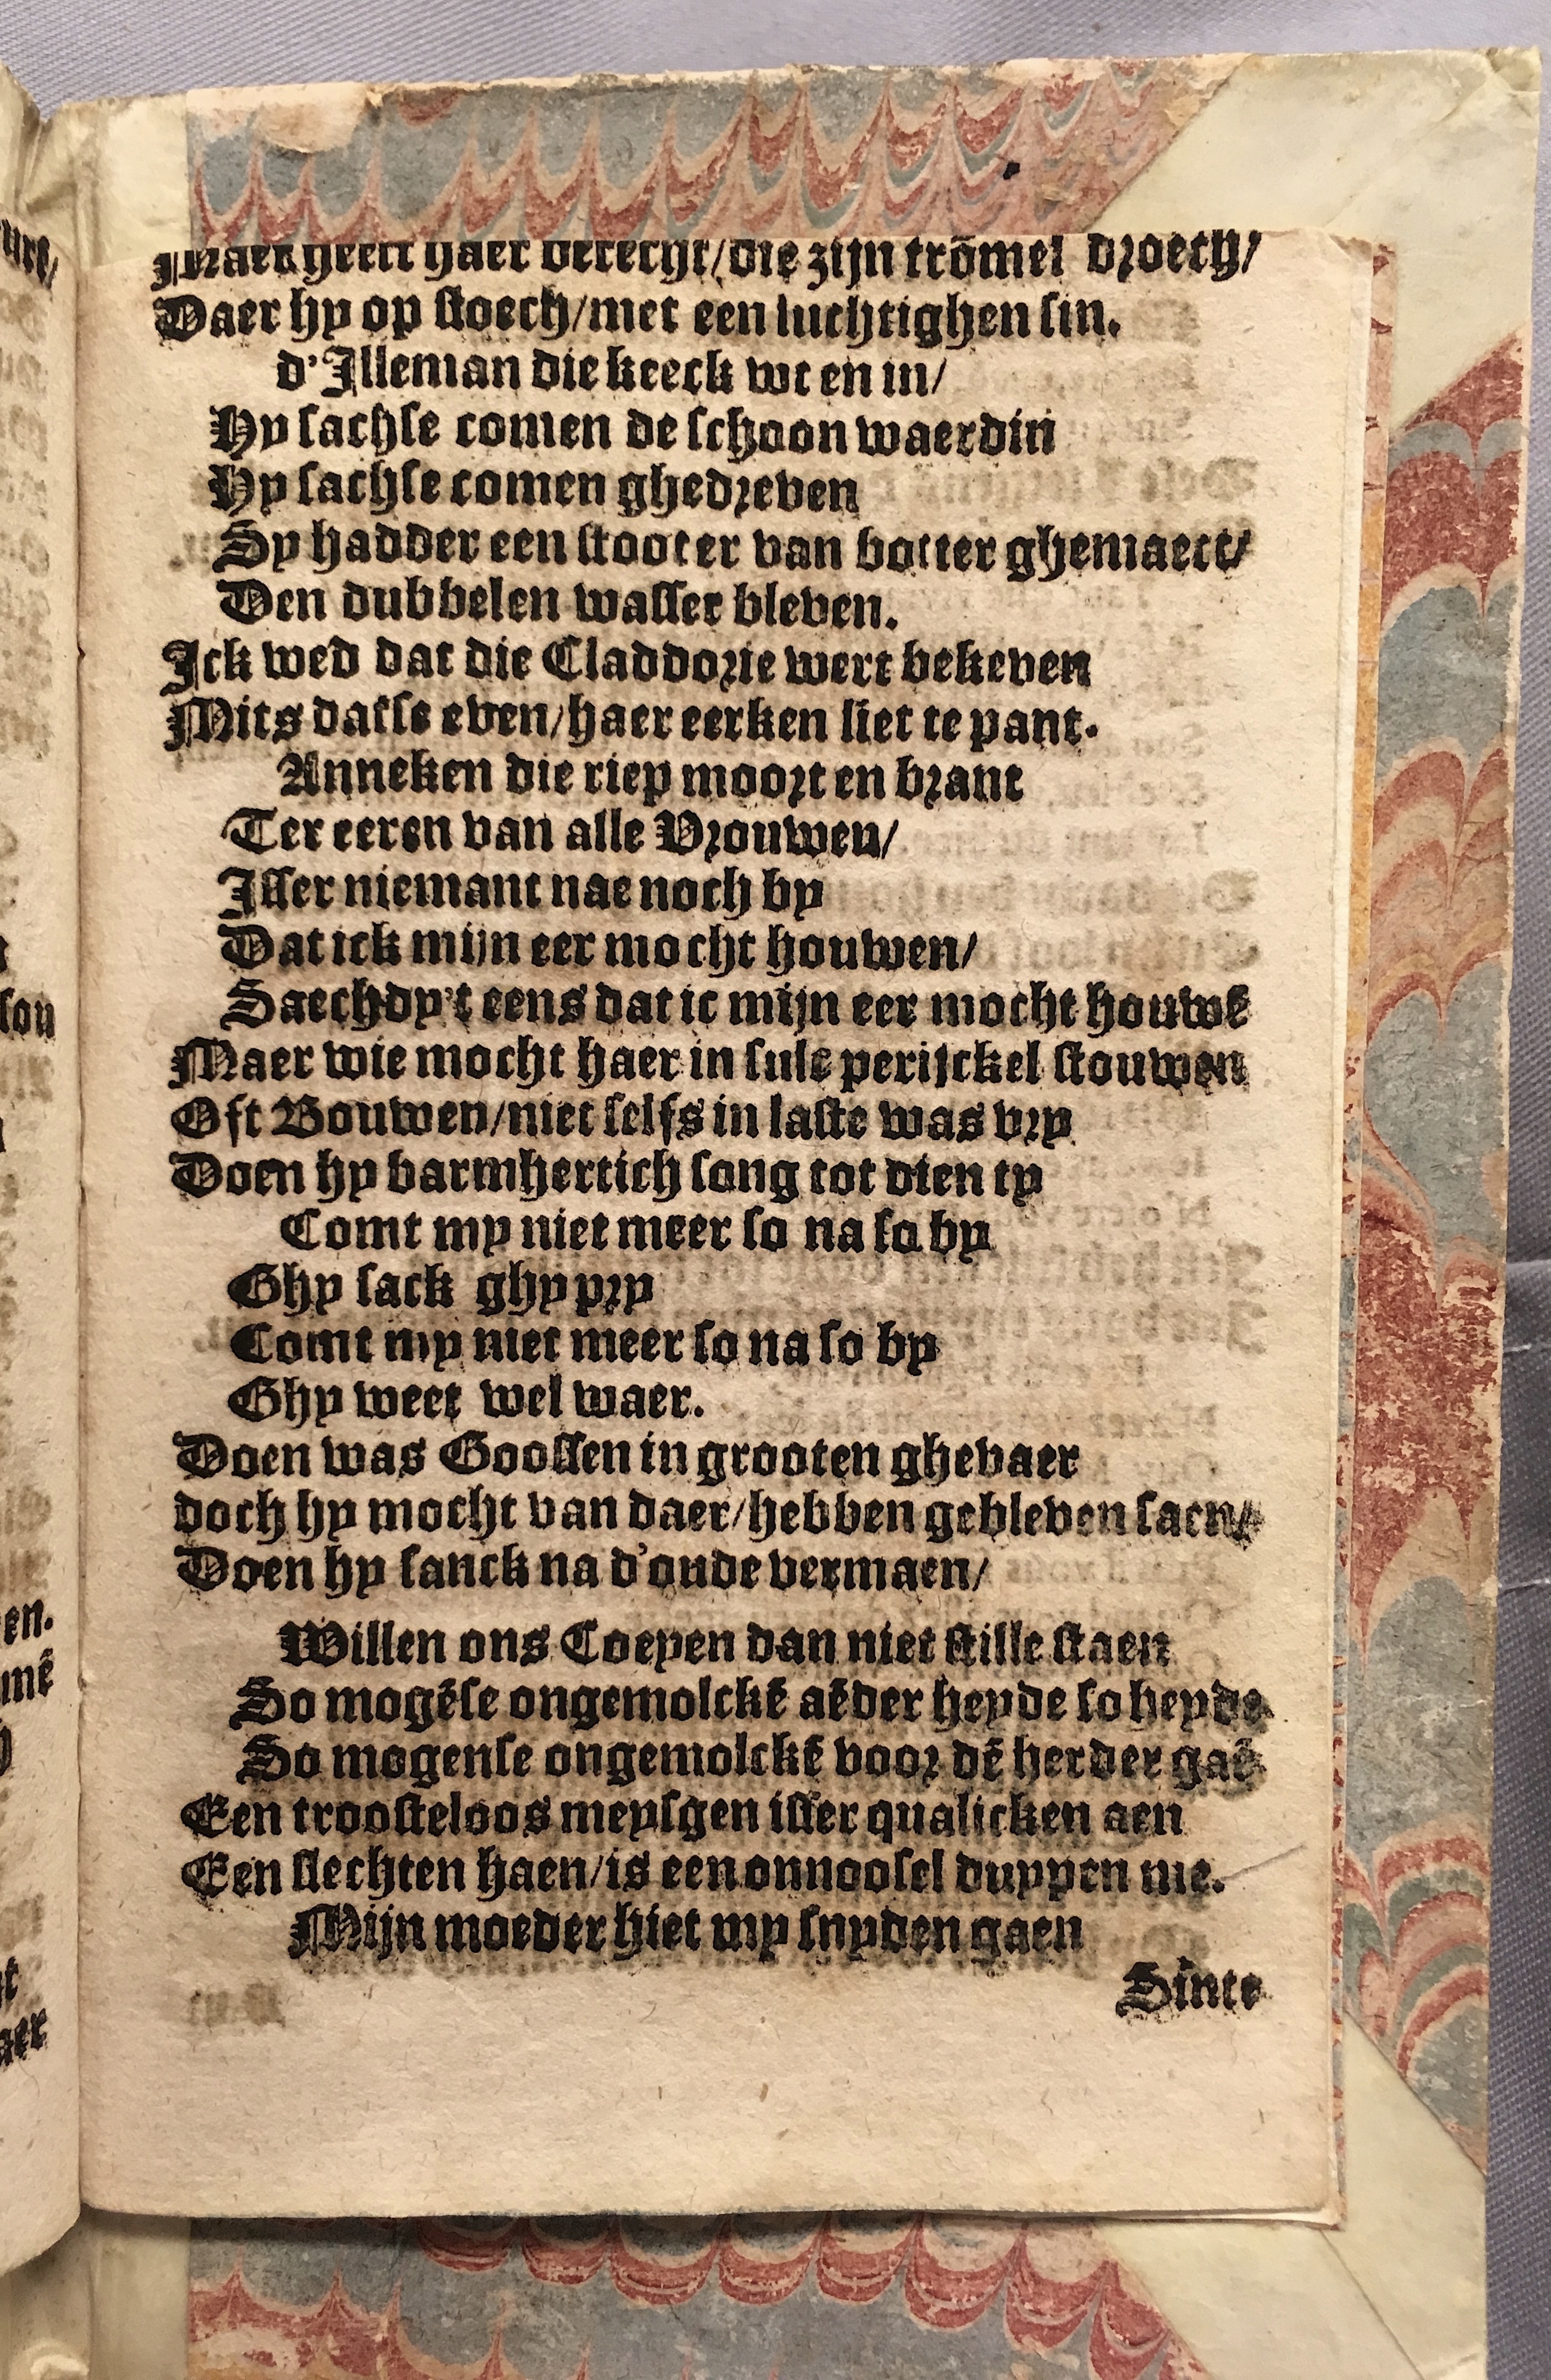 Maer heeft haer berecht/die zijn trõmel droech/
Daer hy op sloech/met een luchtighen sin.
d'Illeman die keeck wt en in/
Hy sachse comen de schoon waerdin
Hy sachse comen ghedreven
Sy hadder een stooter van botter ghemaect/
Den dubbelen wasser bleven.
Ick wed dat die Claddorie wert bekeven
Mits datse even/haer eerken liet te pant.
Anneken die riep moort en brant
Ter eeren van alle Vrouwen/
Isser niemant nae noch by
Dat ick mijn eer mocht houwen/
Saechdy't eens dat ic mijn eer mocht houwẽ
Maer wie mocht haer in sulc perijckel stouwen
Oft Bouwen/niet selfs in laste was vry
Doen hy barmhertich song tot dien ty
Comt my niet meer so na so by
Ghy sack ghy pry
Comt my niet meer so na so by
Ghy weet wel waer.
Doen was Goossen in grooten ghevaer
doch hy mocht van daer/hebben gebleven saen/
Doen hy sanck na d'oude vermaen/
Willen ons Coeyen dan niet stille staen
So mogẽse ongemolckẽ aẽder heyde so heyde
So mogense ongemolckẽ voor dẽ herder gaẽ
Een troosteloos meysgen isser qualicken aen
Een slechten haen/is een onnoosel duypen nie.
Mijn moeder hiet my snyden gaen
Sinte
sou
en.
mẽ
aer